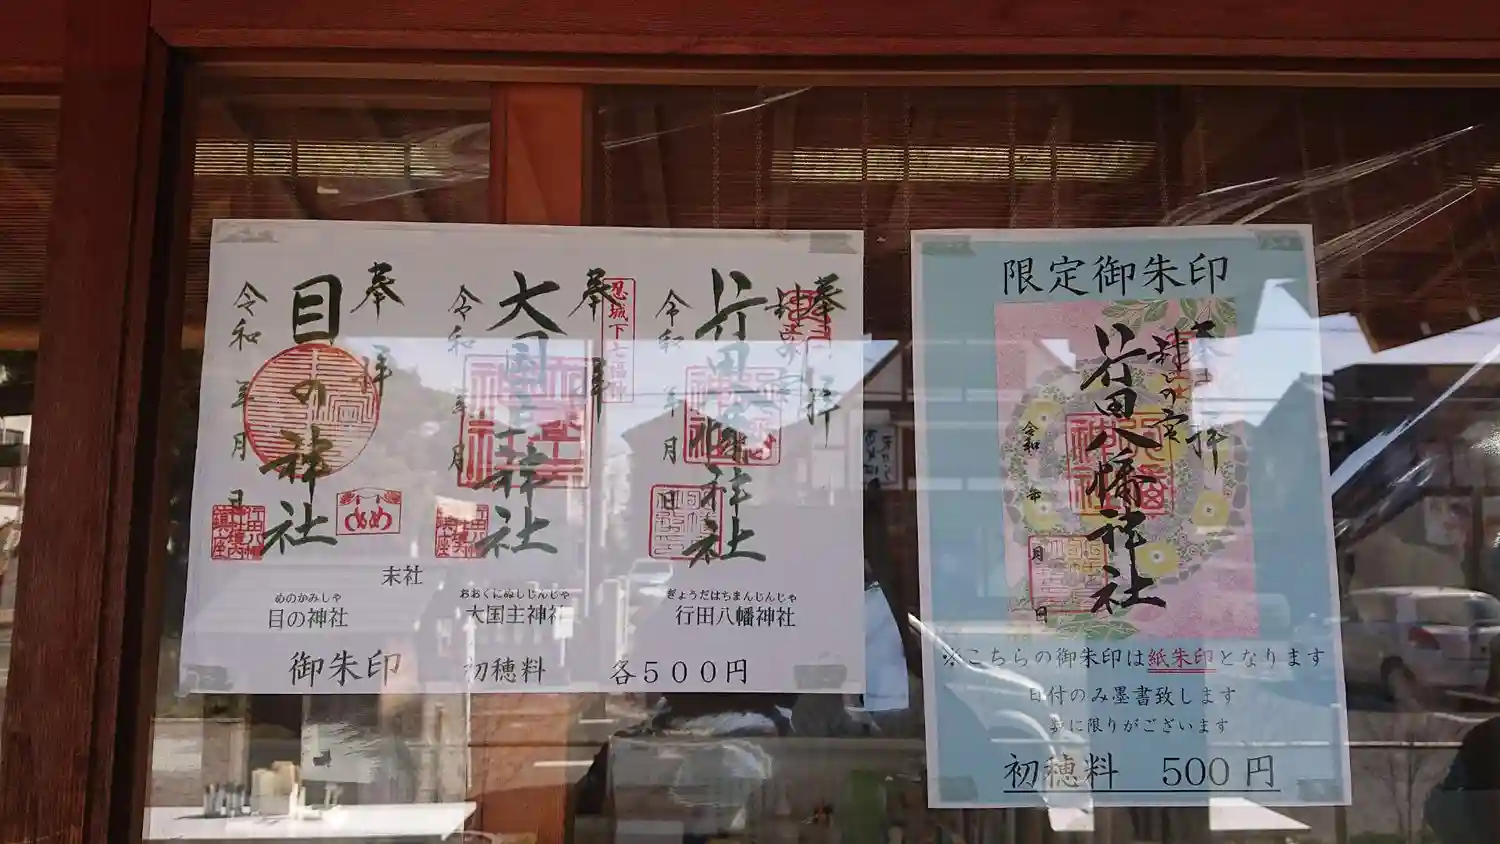 奉拝
目の神社
令和 年 月 日
めめ
奉拝
大国主神社
令和 年 月
忍城下七福神
奉拝
行田八幡神社
令和 年 月 日
末社
めのかみしゃ
目の神社
おおくにぬしじんじゃ
大国主神社
ぎょうだはちまんじんじゃ
行田八幡神社
御朱印 初穂料 各500円
限定御朱印
奉拝
行田八幡神社
令和 年 月 日
※こちらの御朱印は紙朱印となります
日付のみ墨書致します
数に限りがございます
初穂料 500円